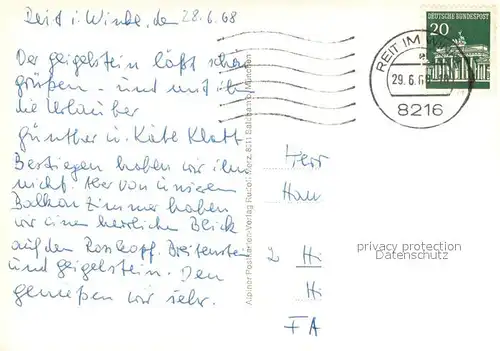 Reit i. Winkl, den 28.6.68
Der Geigelstein läßt schön
grüßen - und mit ihm
die Urlauber
Günther u. Käte Klatt
Bestiegen haben wir ihn
nicht. Aber von unserem
Balkonzimmer haben
wir einen herrlichen Blick
auf den Rosskopf, Breitenstein
und Geigelstein. Den
genießen wir sehr.
Alpiner Postkarten-Verlag Rudolf Merz, 8011 Baldham b. München
DEUTSCHE BUNDESPOST
20
REIT IM
29.6.6
8216
Herr
Han
privacy protection
Datenschutz
2 Hi
Hi
FA